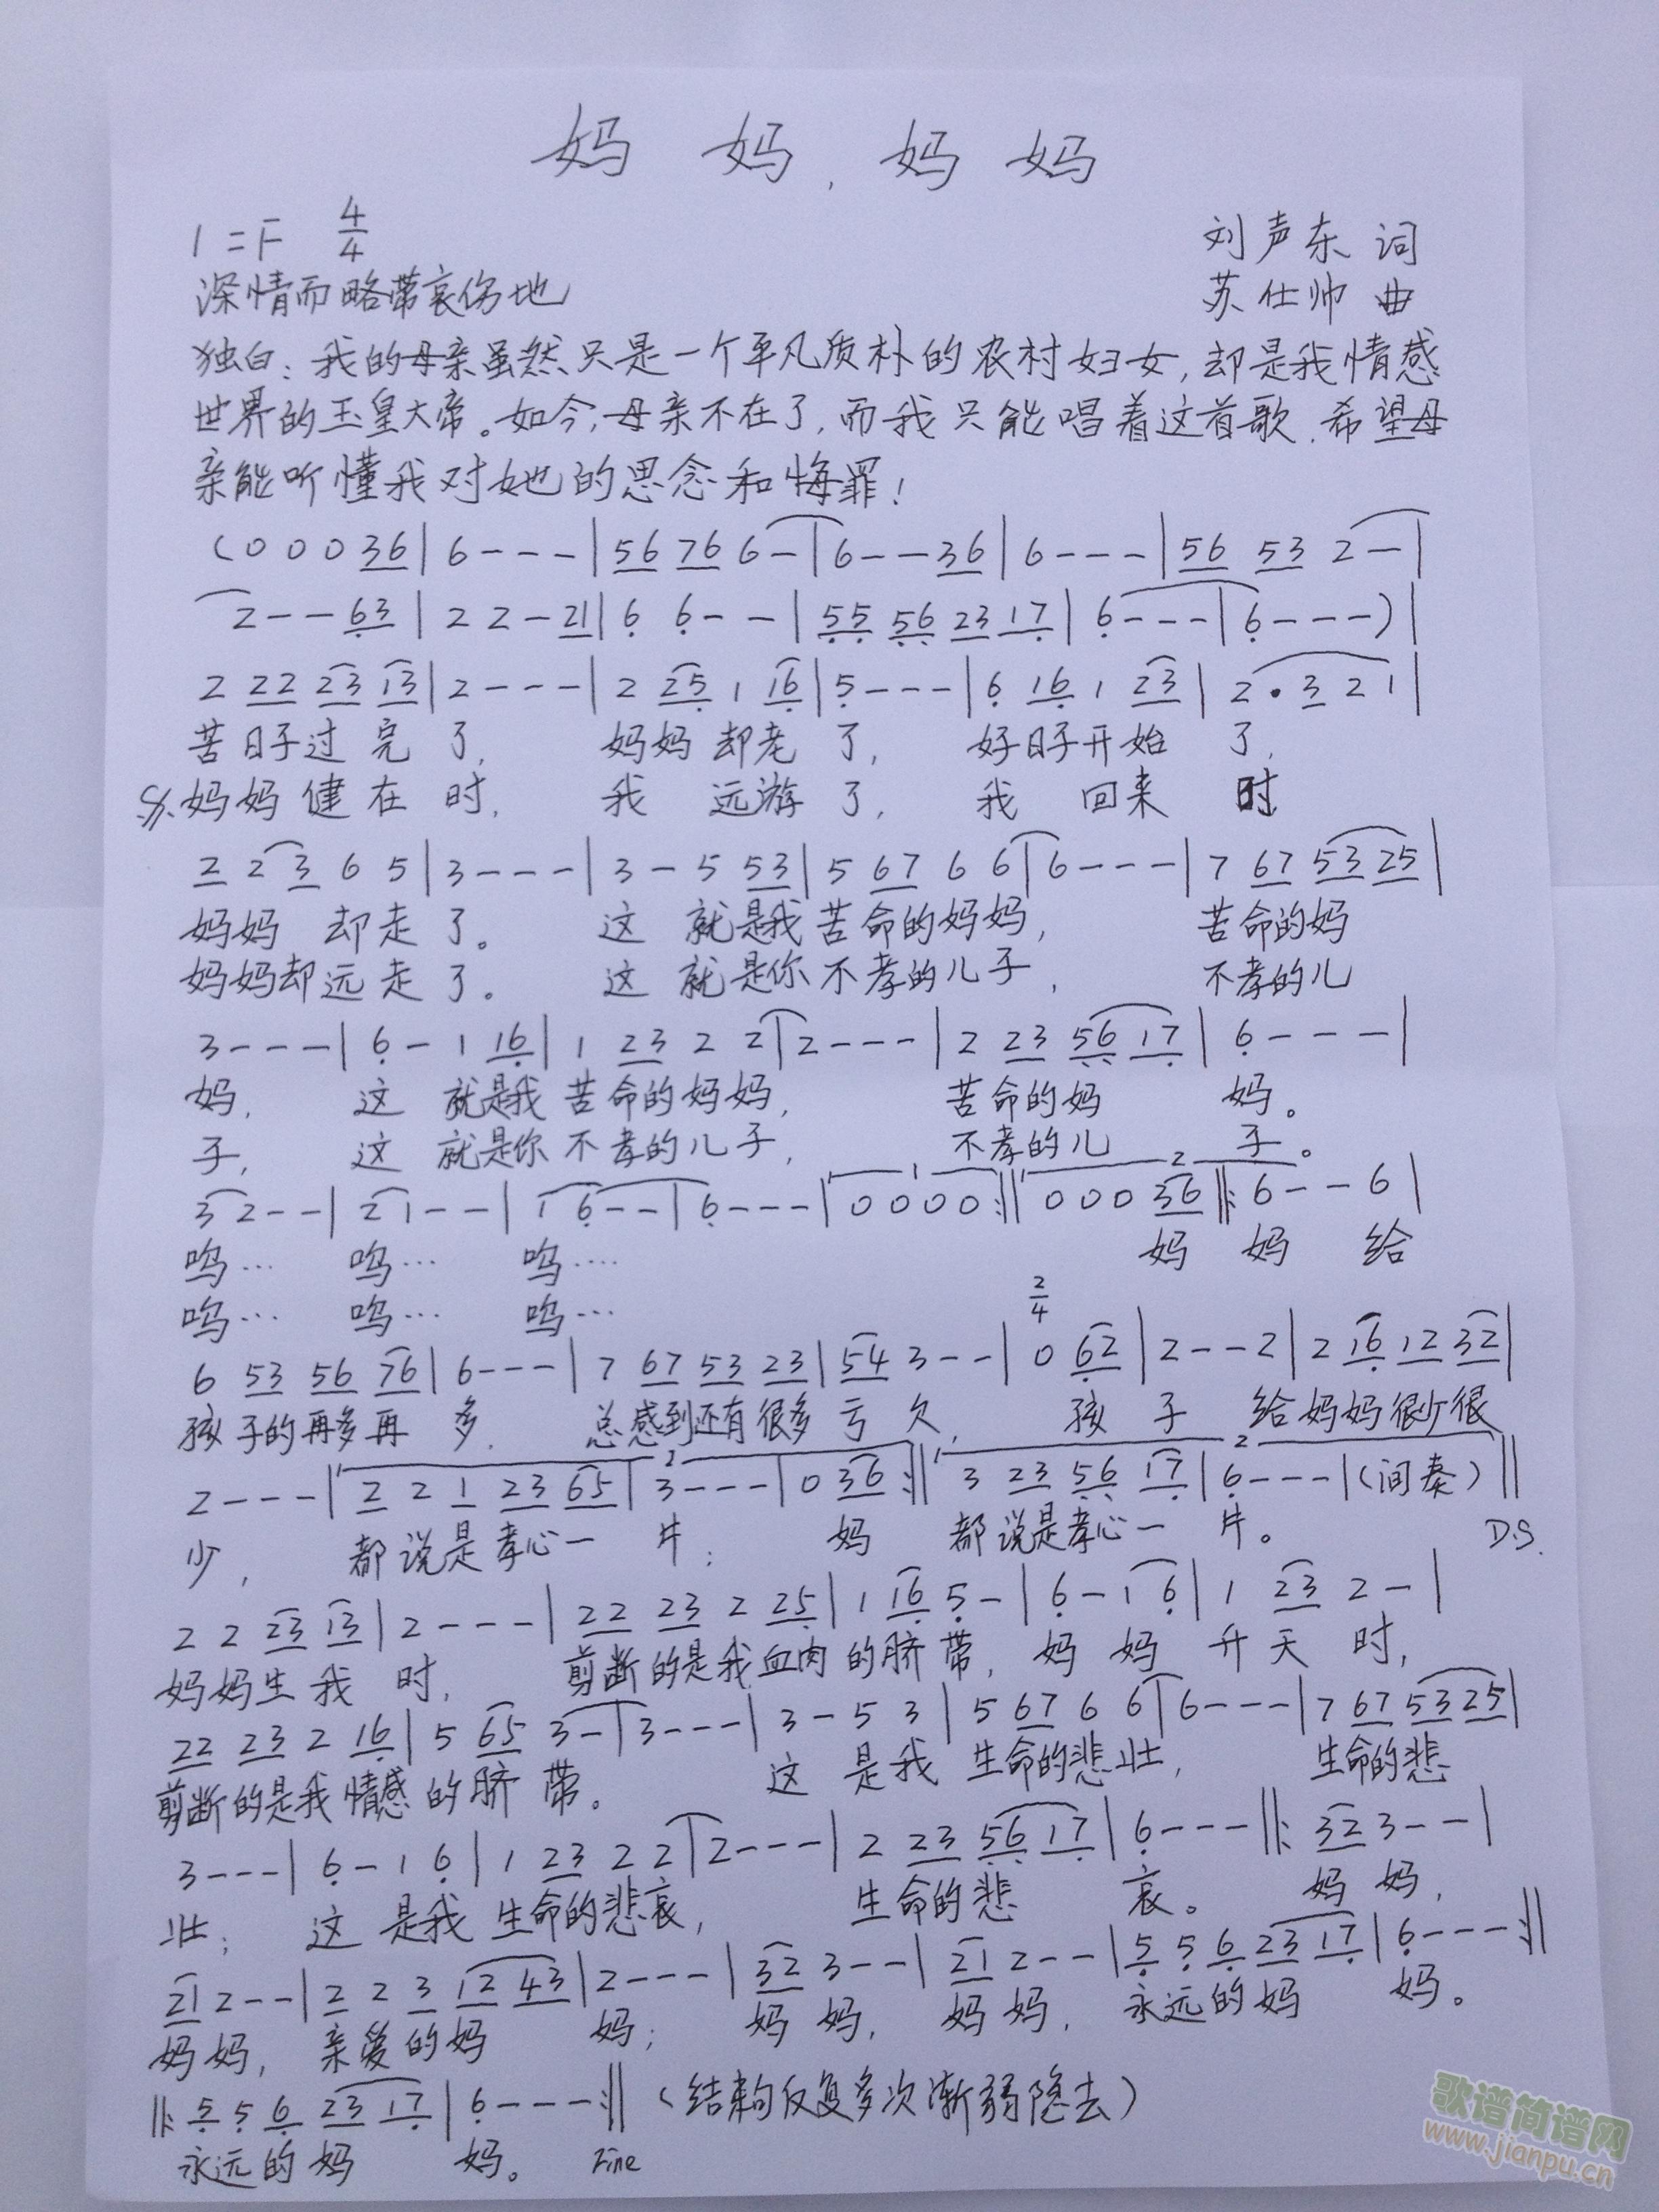 妈 妈，妈 妈
1=F 4/4
刘声东 词
深情而略带哀伤地
苏仕帅 曲
独白：我的母亲虽然只是一个平凡质朴的农村妇女，却是我情感
世界的玉皇大帝。如今，母亲不在了，而我只能唱着这首歌，希望母
亲能听懂我对她的思念和悔罪！
(0 0 0 36 | 6 - - - | 56 76 6 - | 6 - - 36 | 6 - - - | 56 53 2 - |
2 - - 63 | 2 2 - 21 | 6 6 - - | 55 56 23 17 | 6 - - - | 6 - - -) |
2 22 23 13 | 2 - - - | 2 25 1 16 | 5 - - - | 6 16 1 23 | 2 · 3 2 1 |
苦日子过完了， 妈妈却老了， 好日子开始了，
妈妈健在时， 我远游了， 我回来时
2 2 3 6 5 | 3 - - - | 3 - 5 53 | 5 67 6 6 | 6 - - - | 7 67 53 25 |
妈妈却走了。 这就是我苦命的妈妈， 苦命的妈
妈妈却远走了。 这就是你不孝的儿子， 不孝的儿
3 - - - | 6 - 1 16 | 1 23 2 2 | 2 - - - | 2 23 56 17 | 6 - - - |
妈， 这就是我苦命的妈妈， 苦命的妈妈。
子， 这就是你不孝的儿子， 不孝的儿子。
1 2
32 - - | 21 - - | 1 6 - - | 6 - - - | 0 0 0 0 :|| 0 0 0 36 ||: 6 - - 6 |
呜… 呜… 呜…… 妈妈给
呜… 呜… 呜…
2/4
6 53 56 76 | 6 - - - | 7 67 53 23 | 54 3 - - | 0 62 | 2 - - 2 | 2 16 12 32 |
孩子的再多再多， 总感到还有很多亏欠， 孩子给妈妈很少很
1 2
2 - - - | 2 2 1 23 65 | 3 - - - | 0 36 :|| 3 23 56 17 | 6 - - - | (间奏) ||
少， 都说是孝心一片； 妈 都说是孝心一片。 D.S.
2 2 23 13 | 2 - - - | 22 23 2 25 | 1 16 5 - | 6 - 1 6 | 1 23 2 - |
妈妈生我时， 剪断的是我血肉的脐带，妈妈升天时，
22 23 2 16 | 5 65 3 - | 3 - - - | 3 - 5 3 | 5 67 6 6 | 6 - - - | 7 67 53 25 |
剪断的是我情感的脐带。 这是我生命的悲壮， 生命的悲
3 - - - | 6 - 1 6 | 1 23 2 2 | 2 - - - | 2 23 56 17 | 6 - - - ||: 32 3 - - |
壮； 这是我生命的悲哀， 生命的悲哀。 妈妈，
21 2 - - | 2 2 3 12 43 | 2 - - - | 32 3 - - | 21 2 - - | 5 5 6 23 17 | 6 - - - :||
妈妈，亲爱的妈妈； 妈妈，妈妈，永远的妈妈。
||: 5 5 6 23 17 | 6 - - - :|| (结束句反复多次渐弱隐去)
永远的妈妈。 Fine
歌谱简谱网
www.jianpu.cn